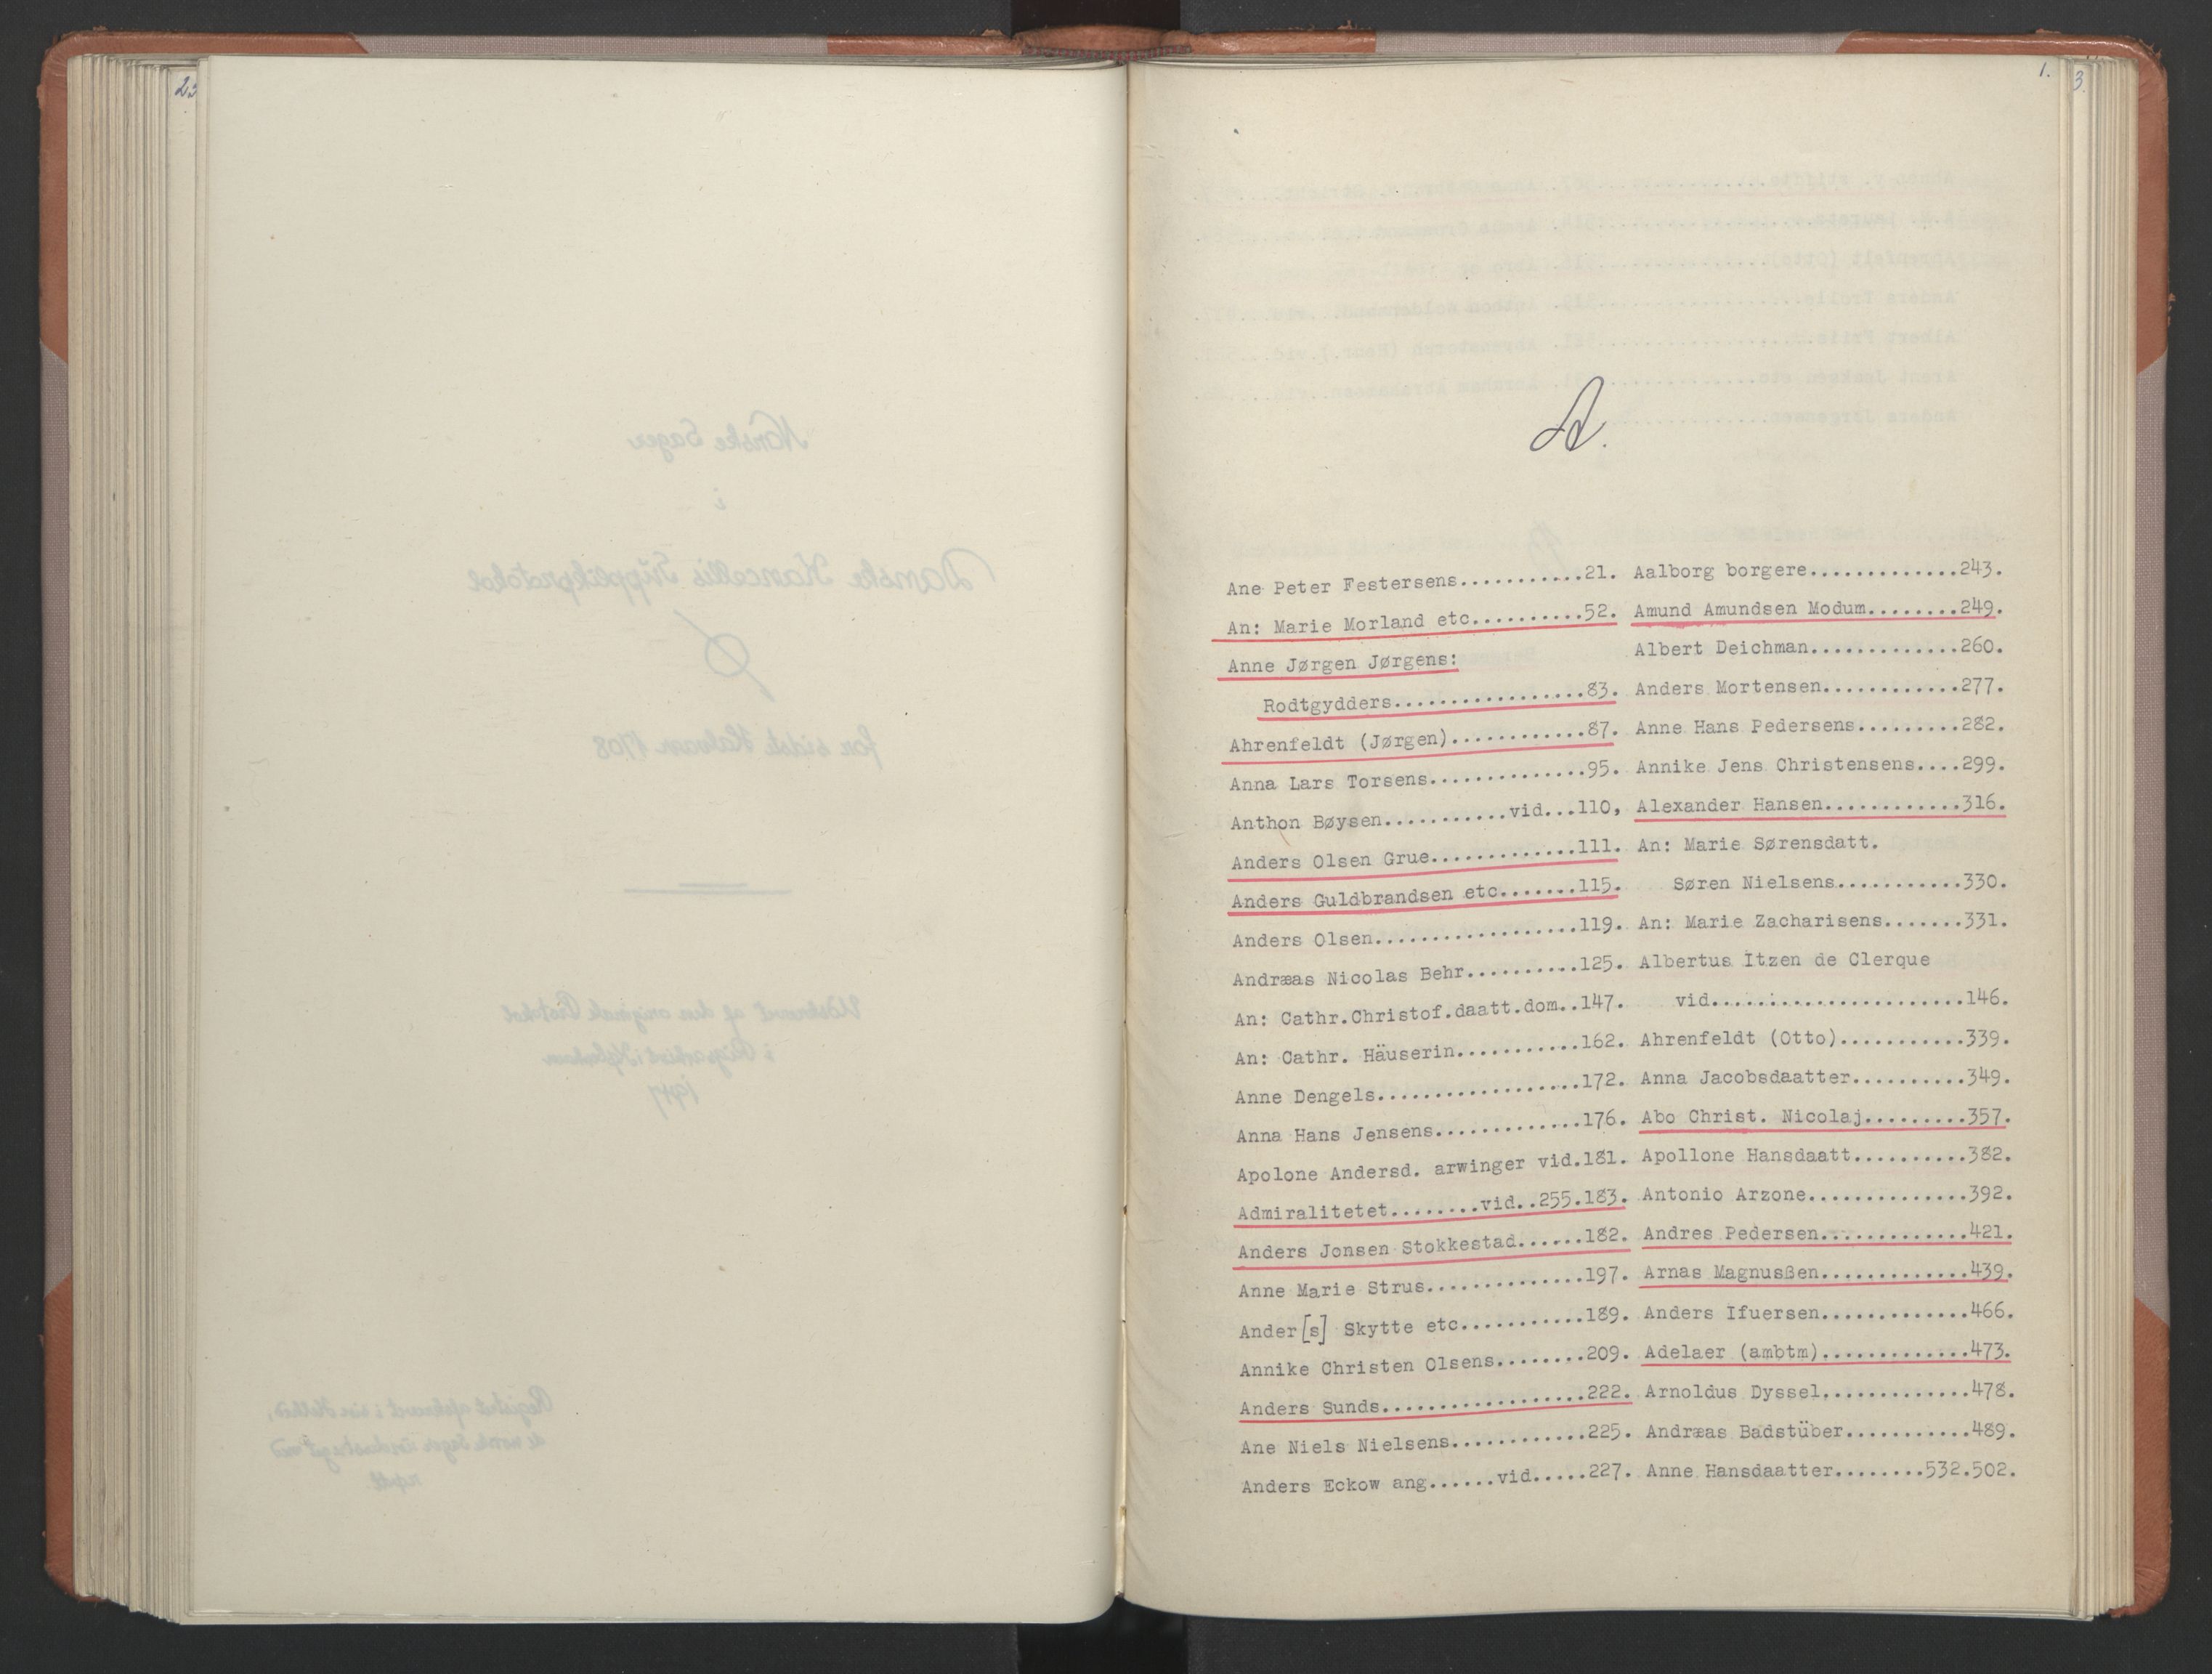 23
1.
3.
A.
Ane Peter Festersens...........21.
An: Marie Morland etc..........52.
Anne Jørgen Jørgens:
Rodtgydders.................83.
Ahrenfeldt (Jørgen)............87.
Anna Lars Torsens..............95.
Anthon Bøysen...........vid...110,
Anders Olsen Grue.............111.
Anders Guldbrandsen etc.......115.
Anders Olsen..................119.
Andræas Nicolas Behr..........125.
An: Cathr.Christof.daatt.dom..147.
An: Cathr. Häuserin...........162.
Anne Dengels..................172.
Anna Hans Jensens.............176.
Apolone Andersd. arwinger vid.181.
Admiralitetet........vid..255.183.
Anders Jonsen Stokkestad......182.
Anne Marie Strus..............197.
Ander[s] Skytte etc...........189.
Annike Christen Olsens........209.
Anders Sunds..................222.
Ane Niels Nielsens............225.
Anders Eckow ang......vid.....227.
Aalborg borgere.............243.
Amund Amundsen Modum........249.
Albert Deichman.............260.
Anders Mortensen............277.
Anne Hans Pedersens.........282.
Annike Jens Christensens....299.
Alexander Hansen............316.
An: Marie Sørensdatt.
Søren Nielsens...........330.
An: Marie Zacharisens.......331.
Albertus Itzen de Clerque
vid......................146.
Ahrenfeldt (Otto)...........339.
Anna Jacobsdaatter..........349.
Abo Christ. Nicolaj.........357.
Apollone Hansdaatt..........382.
Antonio Arzone..............392.
Andres Pedersen.............421.
Arnas Magnusßen.............439.
Anders Ifuersen.............466.
Adelaer (ambtm).............473.
Arnoldus Dyssel.............478.
Andræas Badstüber...........489.
Anne Hansdaatter........532.502.